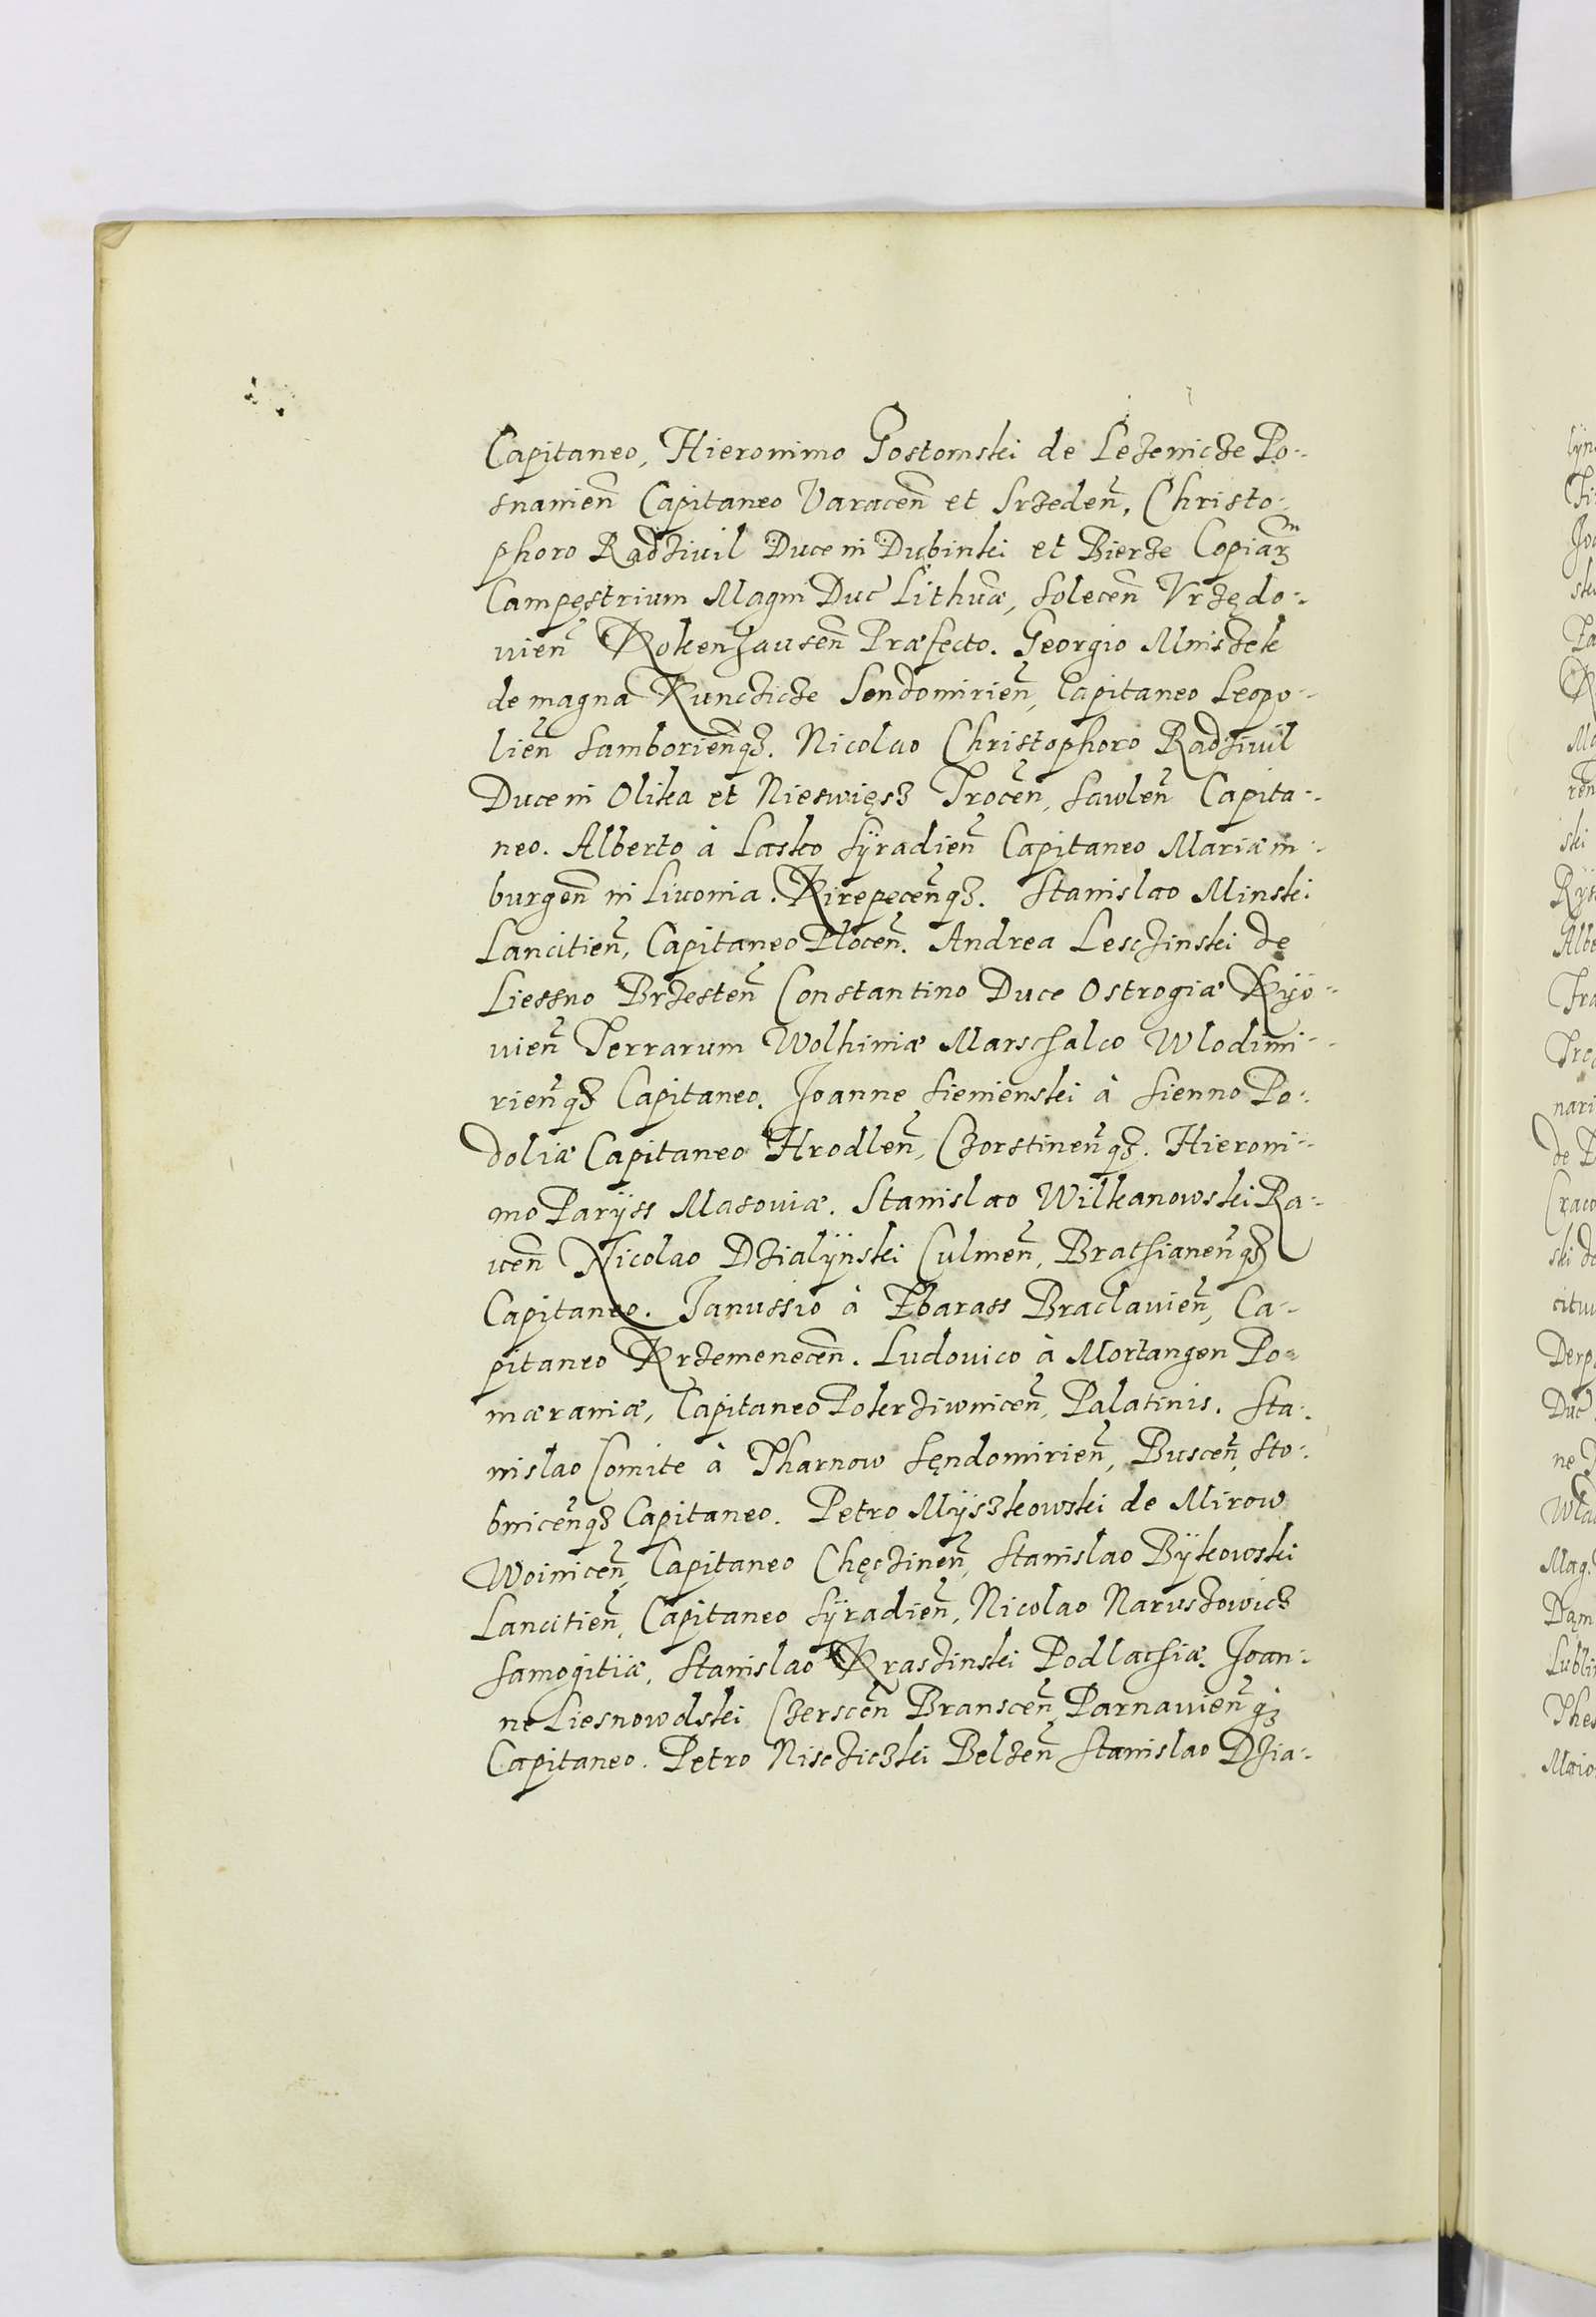 Capitaneo, Hieronimo Gostomski de Leżenicze Po-
snanien̄ Capitaneo Varacen̄ et Srzeden̄, Christo-
phoro Radziuil Duce in Dubinki et Bierze Copiaꝝ
Campęstrium Magni Duc̄ Lithuæ, Solecen̄ Vrzędo-
uien̄ Kokenhausen̄ Præfecto. Georgio Mniszek
de magna Kunczicze Sendomirien̄, Capitaneo Leopo-
lien̄ Samborien̄qȝ. Nicolao Christophoro Radziuil
Duce in Olika et Nieswięsz Trocen̄, Sawlen̄ Capita-
neo. Alberto à Lasko Sÿradien̄ Capitaneo Mariæm-
burgen̄ in Liuonia. Kirepecen̄qȝ. Stanislao Minski
Lancitien̄, Capitaneo Plocen̄. Andrea Lesczinski de
Liessno Brzesten̄ Constantino Duce Ostrogiæ Kÿo-
uien̄ Terrarum Wolhiniæ Marschalco Wlodimi-
rien̄qȝ Capitaneo. Joanne Sienienski à Sienno Po-
doliæ Capitaneo Hrodlen̄, Czorstinen̄qȝ. Hieroni-
mo Parÿss Masouiæ. Stanislao Wilkanowski Ra-
uen̄ Nicolao Dzialÿnski Culmen̄, Brathianen̄qȝ
Capitaneo. Janussio à Zbarass Braclauien̄, Ca-
pitaneo Krzemenecen̄. Ludouico à Mortangen Po-
mæraniæ, Capitaneo Pokrziwnicen̄, Palatinis. Sta-
nislao Comite à Tharnow Sęndomirien̄, Buscen̄, Sto-
bnicen̄qȝ Capitaneo. Petro Mÿszkowski de Mirow
Woinicen̄, Capitaneo Chęczinen̄, Stanislao Bÿkowski
Lancitien̄, Capitaneo Sÿradien̄, Nicolao Naruszowicz
Samogitiæ, Stanislao Kraszinski Podlachiæ. Joan-
ne Liesnowolski Czerscen̄ Branscen̄, Parnauien̄qȝ
Capitaneo. Petro Niscziczki Belzen̄ Stanislao Dzia-